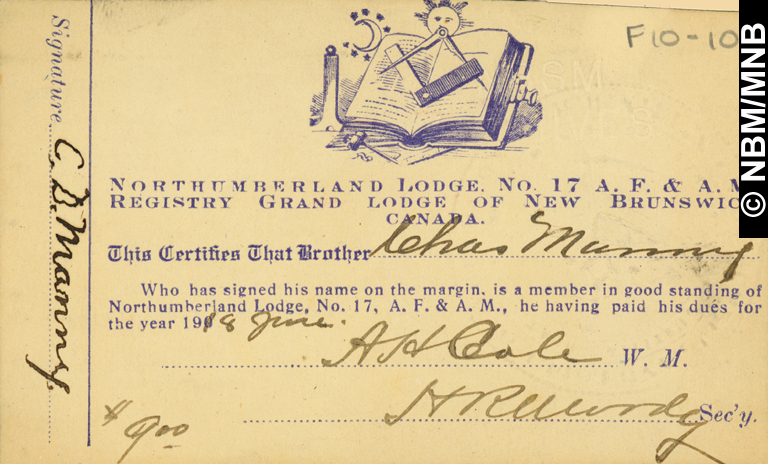 F10-10
© NBM/MNB
NORTHUMBERLAND LODGE, NO. 17 A. F. & A. M
REGISTRY GRAND LODGE OF NEW BRUNSWIC
CANADA.
This Certifies That Brother Chas Manny
Who has signed his name on the margin, is a member in good standing of
Northumberland Lodge, No. 17, A. F. & A. M., he having paid his dues for
the year 1918 June.
A H Cole W. M.
Sec'y.
$9.00
Signature C. D. Manny.